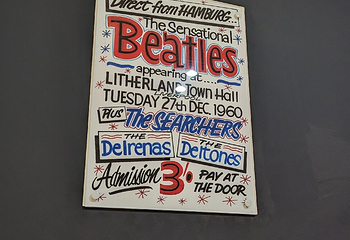 Direct from HAMBURG...
The Sensational
Beatles
appearing at....
LITHERLAND Town Hall
TUESDAY 27th DEC. 1960
Plus The SEARCHERS
THE DelRenas THE Deltones
Admission 3/- PAY AT
THE DOOR